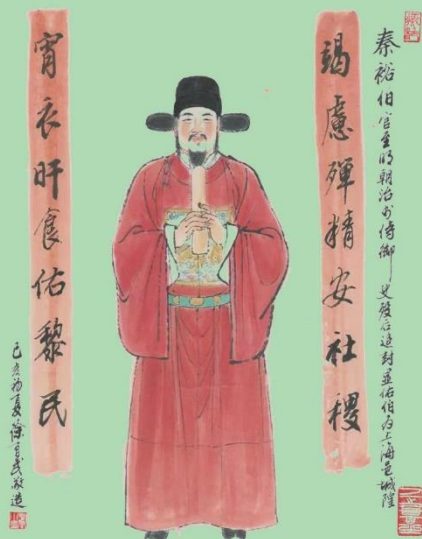 秦裕伯官至明朝治书侍御史殁后追封显佑伯为上海邑城隍
竭慮殫精安社稷
宵衣旰食佑黎民
己亥初夏徐
敬造